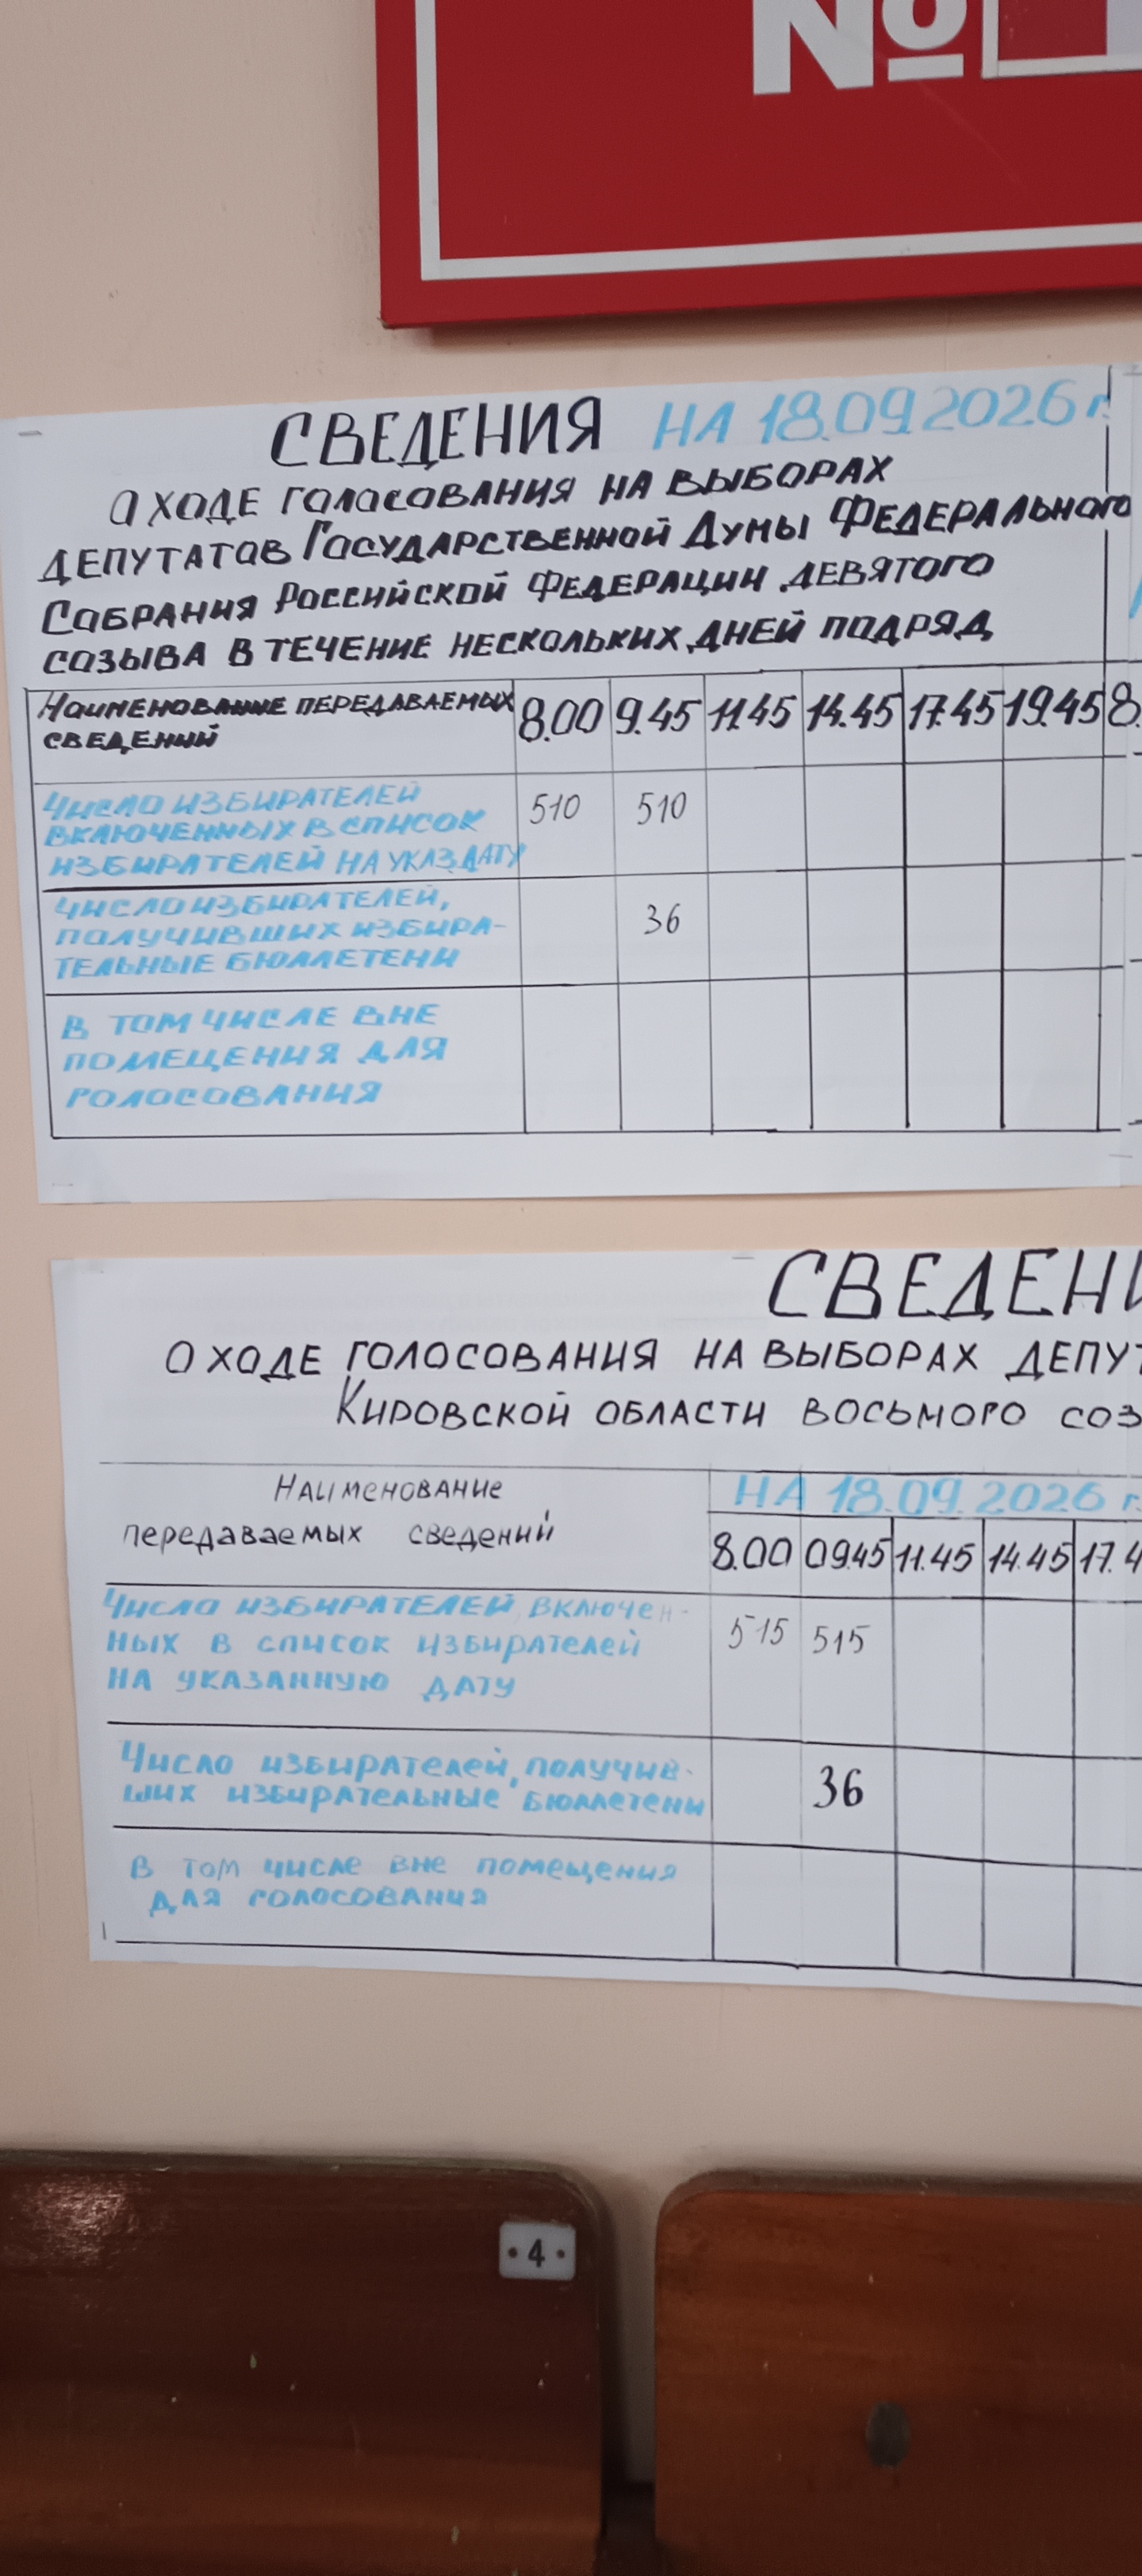 №
СВЕДЕНИЯ НА 18.09.2026 г.
О ХОДЕ ГОЛОСОВАНИЯ НА ВЫБОРАХ
ДЕПУТАТОВ ГОСУДАРСТВЕННОЙ ДУМЫ ФЕДЕРАЛЬНОГО
СОБРАНИЯ РОССИЙСКОЙ ФЕДЕРАЦИИ ДЕВЯТОГО
СОЗЫВА В ТЕЧЕНИЕ НЕСКОЛЬКИХ ДНЕЙ ПОДРЯД
НАИМЕНОВАНИЕ ПЕРЕДАВАЕМЫХ 8.00 9.45 11.45 14.45 17.45 19.45 8.
СВЕДЕНИЙ
ЧИСЛО ИЗБИРАТЕЛЕЙ 510 510
ВКЛЮЧЕННЫХ В СПИСОК
ИЗБИРАТЕЛЕЙ НА УКАЗ.ДАТУ
ЧИСЛО ИЗБИРАТЕЛЕЙ, 36
ПОЛУЧИВШИХ ИЗБИРА-
ТЕЛЬНЫЕ БЮЛЛЕТЕНИ
В ТОМ ЧИСЛЕ ВНЕ
ПОМЕЩЕНИЯ ДЛЯ
ГОЛОСОВАНИЯ
СВЕДЕНИ
О ХОДЕ ГОЛОСОВАНИЯ НА ВЫБОРАХ ДЕПУТ
КИРОВСКОЙ ОБЛАСТИ ВОСЬМОГО СОЗ
НАИМЕНОВАНИЕ НА 18.09.2026 г.
передаваемых сведений 8.00 09.45 11.45 14.45 17.4
ЧИСЛО ИЗБИРАТЕЛЕЙ, ВКЛЮЧЕН- 515 515
НЫХ В СПИСОК ИЗБИРАТЕЛЕЙ
НА УКАЗАННУЮ ДАТУ
ЧИСЛО ИЗБИРАТЕЛЕЙ, ПОЛУЧИВ- 36
ШИХ ИЗБИРАТЕЛЬНЫЕ БЮЛЛЕТЕНИ
В ТОМ ЧИСЛЕ ВНЕ ПОМЕЩЕНИЯ
ДЛЯ ГОЛОСОВАНИЯ
4